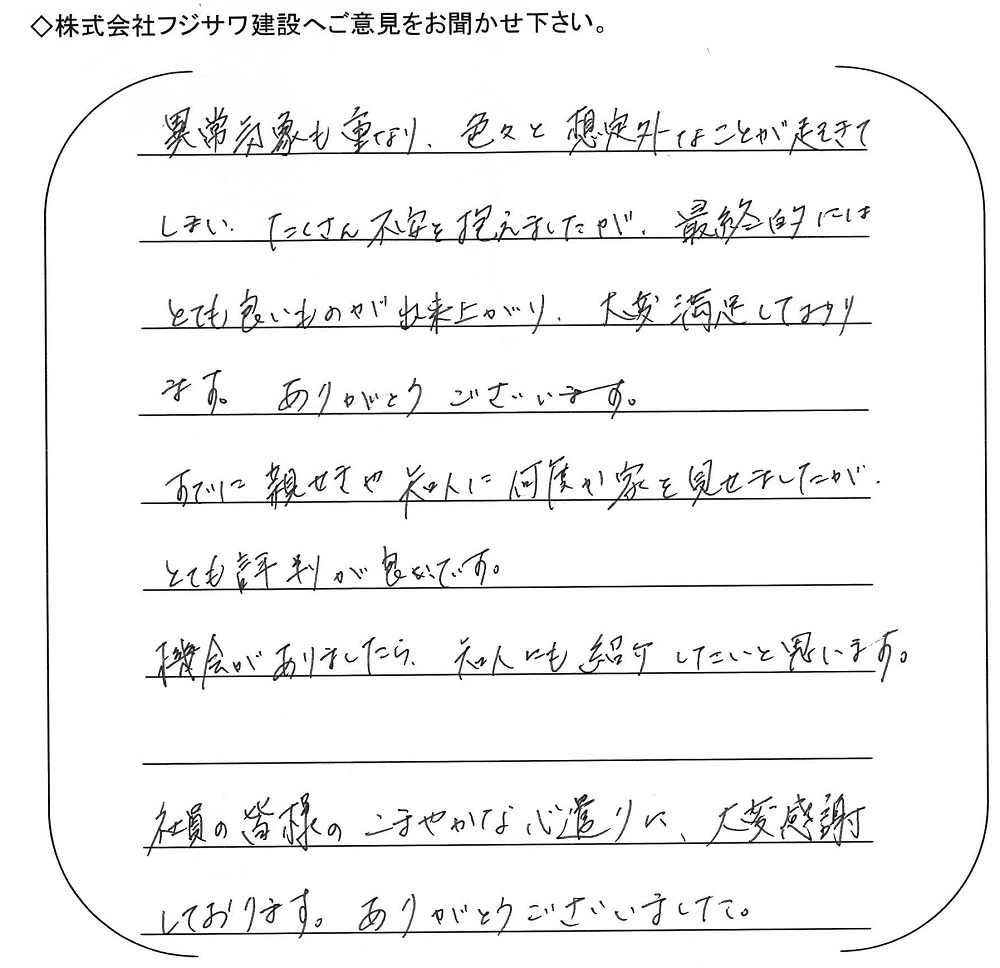 ◇株式会社フジサワ建設へご意見をお聞かせ下さい。
異常気象も重なり、色々と想定外なことが起きて
しまい、たくさん不安を抱えましたが、最終的には
とても良いものが出来上がり、大変満足しており
ます。ありがとうございます。
すでに親せきや知人に何度か家を見せましたが、
とても評判が良いです。
機会がありましたら、知人にも紹介したいと思います。
社員の皆様のこまやかな心遣いに、大変感謝
しております。ありがとうございました。